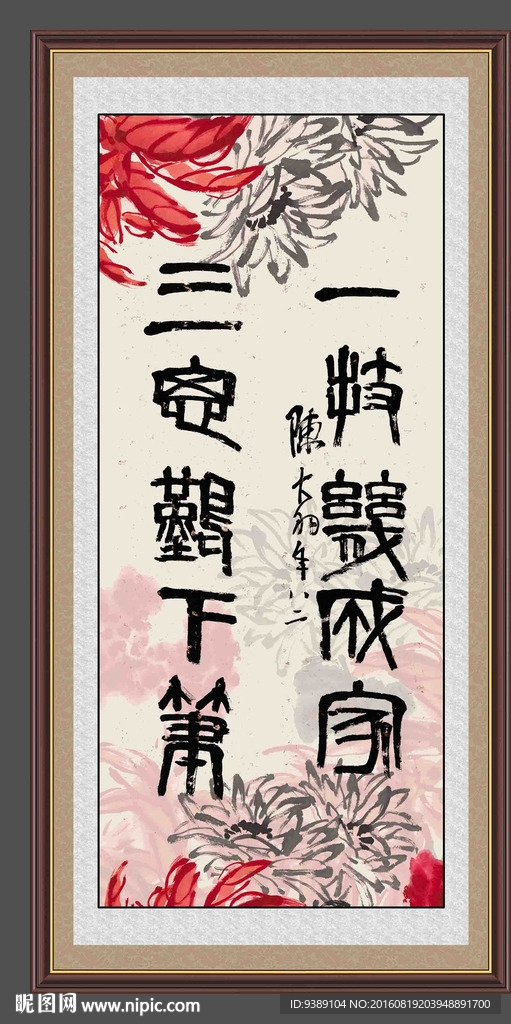 一技幾成家
陳大羽年八二
三思難下筆
昵图网 www.nipic.com
ID:9389104 NO:20160819203948891700